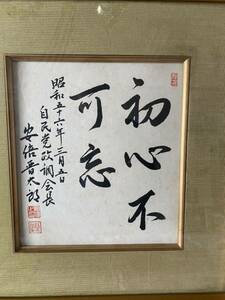 初心不
可忘
昭和五十六年三月五日
自民党政調会長
安倍晋太郎